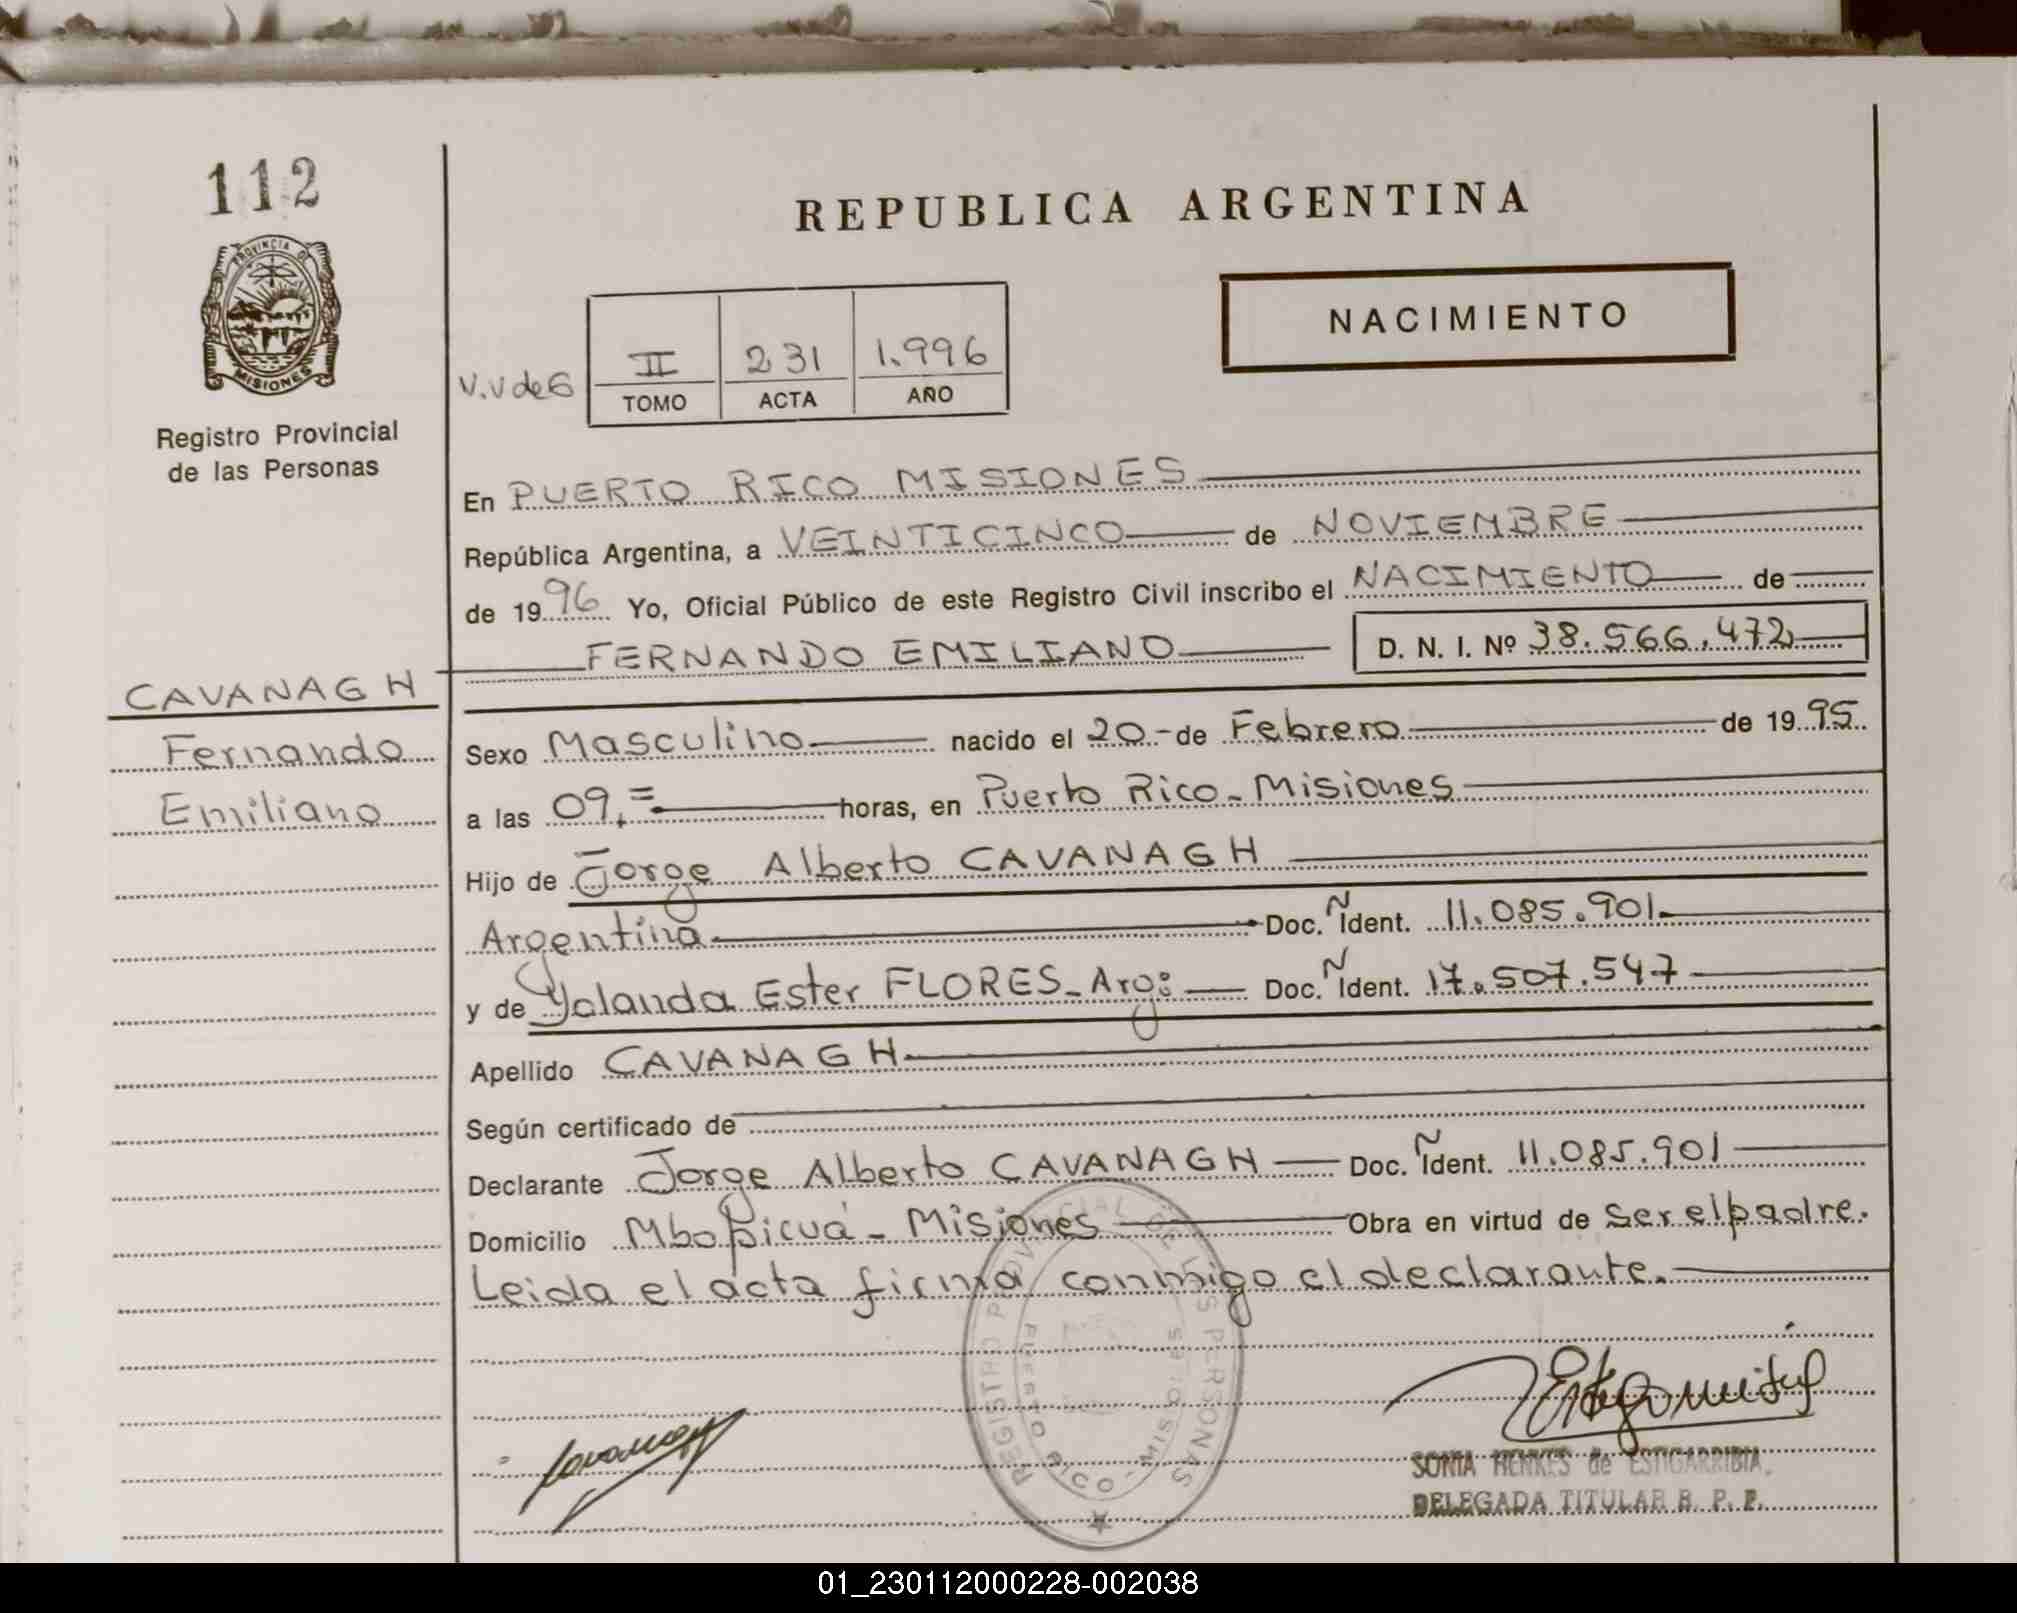 112
PROVINCIA DE
MISIONES
Registro Provincial
de las Personas
REPUBLICA ARGENTINA
NACIMIENTO
V.V de G
II 231 1.996
TOMO ACTA AÑO
En PUERTO RICO MISIONES
República Argentina, a VEINTICINCO de NOVIEMBRE
de 1996 Yo, Oficial Público de este Registro Civil inscribo el NACIMIENTO de
FERNANDO EMILIANO D. N. I. Nº 38.566.472
CAVANAGH
Fernando
Emiliano
Sexo Masculino nacido el 20 - de Febrero de 1995
a las 09,= horas, en Puerto Rico - Misiones
Hijo de Jorge Alberto CAVANAGH
Argentina Doc. Ñ Ident. 11.085.901
y de Yolanda Ester FLORES - Arg: Doc. Ñ Ident. 17.507.547
Apellido CAVANAGH
Según certificado de
Declarante Jorge Alberto CAVANAGH Doc. Ñ Ident. 11.085.901
Domicilio Mbopicuá - Misiones Obra en virtud de Ser el padre.
Leida el acta firma conmigo el declarante.
REGISTRO PROVINCIAL DE LAS PERSONAS
PUERTO RICO - MISIONES
SONIA HENKES de ESTIGARRIBIA
DELEGADA TITULAR R. P. P.
01_230112000228-002038